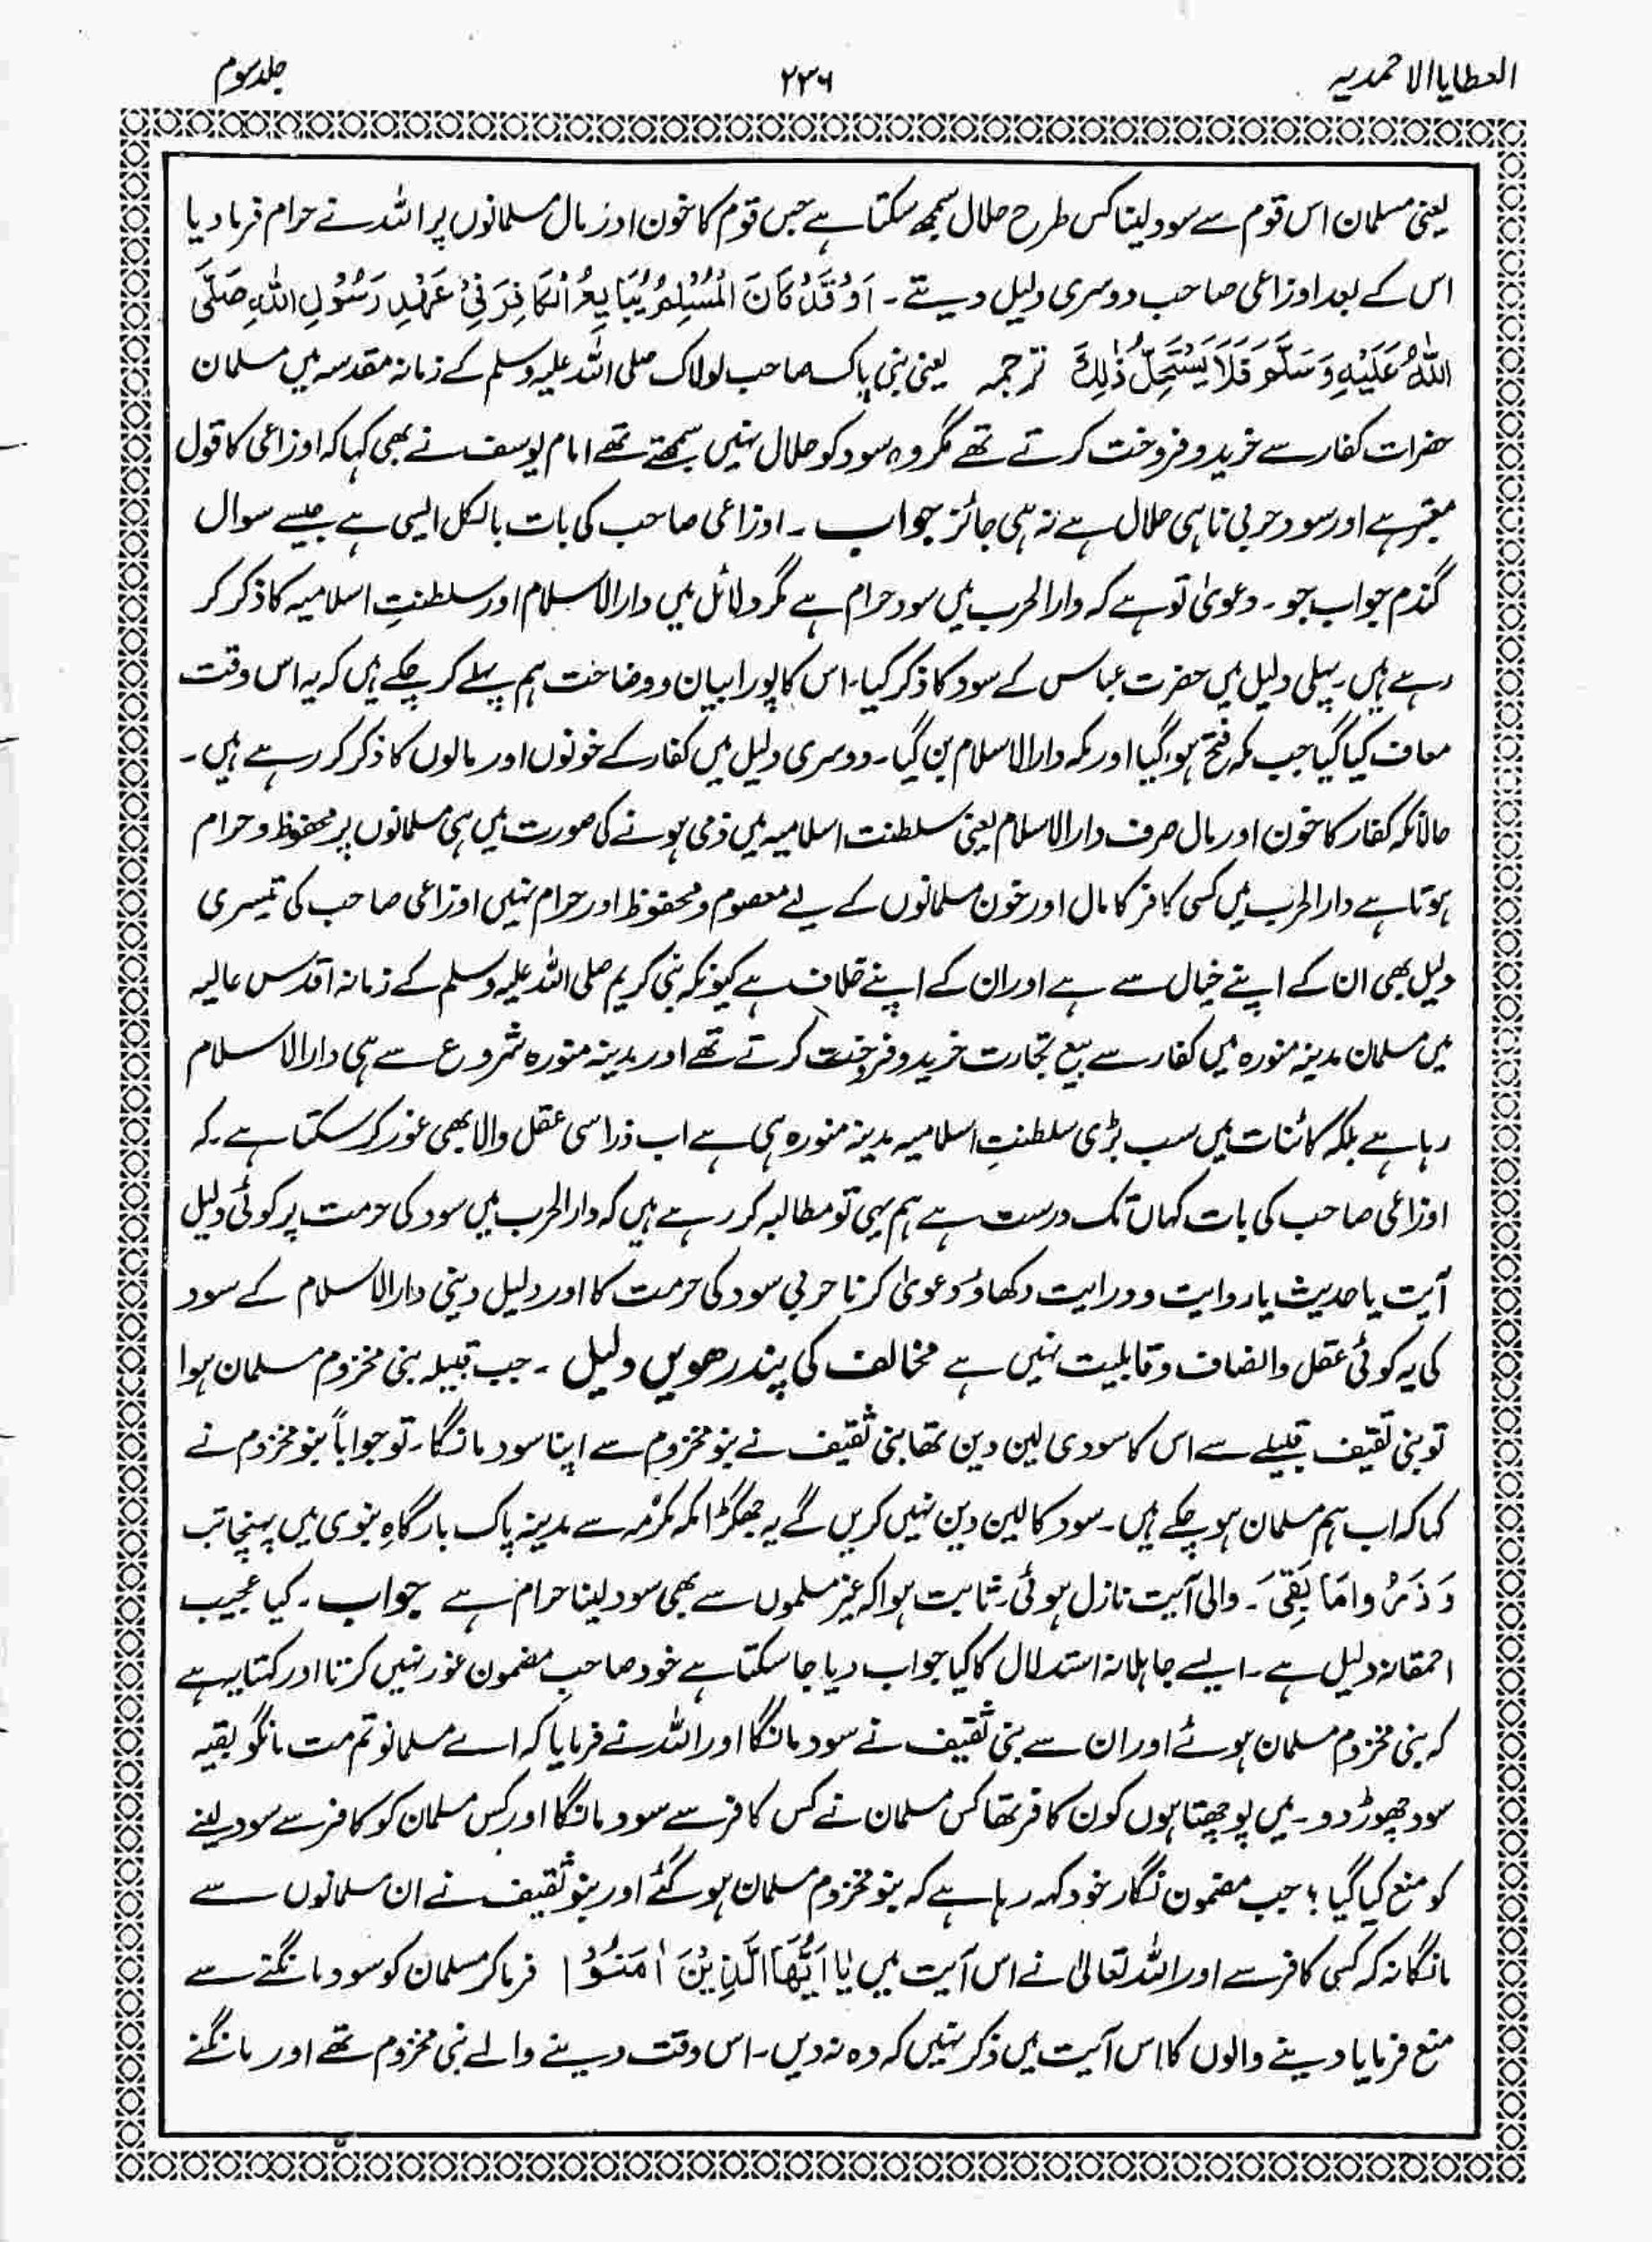 العطایا الاحمدیہ ۲۳۶ جلد سوم
یعنی مسلمان اس قوم سے سود لینا کس طرح حلال سمجھ سکتا ہے جس قوم کا خون اور مال مسلمانوں پر اللہ نے حرام فرما دیا
اس کے بعد اوزاعی صاحب دوسری دلیل دیتے۔ اَوْ قَدْ کَانَ الْمُسْلِمُ یُبَایِعُ الْکَافِرَ فِیْ عَہْدِ رَسُوْلِ اللہِ صَلَّی
اللہُ عَلَیْہِ وَسَلَّمَ فَلَا یَسْتَحِلُّ ذٰلِکَ ترجمہ یعنی نبی پاک صاحب لولاک صلی اللہ علیہ وسلم کے زمانہ مقدسہ میں مسلمان
حضرات کفار سے خرید و فروخت کرتے تھے مگر وہ سود کو حلال نہیں سمجھتے تھے امام یوسف نے بھی کہا کہ اوزاعی کا قول
معتبر ہے اور سود حربی نا ہی حلال ہے نہ ہی جائز جواب ۔ اوزاعی صاحب کی بات بالکل ایسی ہے جیسے سوال
گندم جواب جو ۔ دعویٰ تو ہے کہ دارالحرب میں سود حرام ہے مگر دلائل میں دارالاسلام اور سلطنتِ اسلامیہ کا ذکر کر
رہے ہیں۔ پہلی دلیل میں حضرت عباس کے سود کا ذکر کیا۔ اس کا پورا بیان و وضاحت ہم پہلے کر چکے ہیں کہ یہ اس وقت
معاف کیا گیا جب مکہ فتح ہو گیا اور مکہ دارالاسلام بن گیا۔ دوسری دلیل میں کفار کے خونوں اور مالوں کا ذکر کر رہے ہیں۔
حالانکہ کفار کا خون اور مال صرف دارالاسلام یعنی سلطنت اسلامیہ میں ذمی ہونے کی صورت میں ہی مسلمانوں پر محفوظ و حرام
ہوتا ہے دارالحرب میں کسی کافر کا مال اور خون مسلمانوں کے لیے معصوم و محفوظ اور حرام نہیں اوزاعی صاحب کی تیسری
دلیل بھی ان کے اپنے خیال سے ہے اور ان کے اپنے خلاف ہے کیونکہ نبی کریم صلی اللہ علیہ وسلم کے زمانہ اقدس عالیہ
میں مسلمان مدینہ منورہ میں کفار سے بیع تجارت خرید و فروخت کرتے تھے اور مدینہ منورہ شروع سے ہی دارالاسلام
رہا ہے بلکہ کائنات میں سب بڑی سلطنتِ اسلامیہ مدینہ منورہ ہی ہے اب ذرا سی عقل والا بھی غور کر سکتا ہے۔ کہ
اوزاعی صاحب کی بات کہاں تک درست ہے ہم یہی تو مطالبہ کر رہے ہیں کہ دارالحرب میں سود کی حرمت پر کوئی دلیل
آیت یا حدیث یا روایت و درایت دکھاؤ دعویٰ کرنا حربی سود کی حرمت کا اور دلیل دینی دارالاسلام کے سود
کی یہ کوئی عقل و انصاف و قابلیت نہیں ہے مخالف کی پندرھویں دلیل ۔ جب قبیلہ بنی مخزوم مسلمان ہوا
تو بنی ثقیف قبیلے سے اس کا سودی لین دین تھا بنی ثقیف نے بنو مخزوم سے اپنا سود مانگا۔ تو جواباً بنو مخزوم نے
کہا کہ اب ہم مسلمان ہو چکے ہیں۔ سود کا لین دین نہیں کریں گے یہ جھگڑا مکہ مکرّمہ سے مدینہ پاک بارگاہِ نبوی میں پہنچا تب
وَ ذَرُوا مَا بَقِیَ ۔ والی آیت نازل ہوئی۔ ثابت ہوا کہ غیر مسلموں سے بھی سود لینا حرام ہے جواب ۔ کیا عجیب
احمقانہ دلیل ہے۔ ایسے جاہلانہ استدلال کا کیا جواب دیا جا سکتا ہے خود صاحبِ مضمون غور نہیں کرتا اور کہتا ہے
کہ بنی مخزوم مسلمان ہوئے اور ان سے بنی ثقیف نے سود مانگا اور اللہ نے فرمایا کہ اے مسلمانو تم مت مانگو بقیہ
سود چھوڑ دو۔ میں پوچھتا ہوں کون کافر تھا کس مسلمان نے کس کافر سے سود مانگا اور کس مسلمان کو کافر سے سود لینے
کو منع کیا گیا ؛ جب مضمون نگار خود کہہ رہا ہے کہ بنو مخزوم مسلمان ہو گئے اور بنو ثقیف نے ان مسلمانوں سے
مانگا نہ کہ کسی کافر سے اور اللہ تعالیٰ نے اس آیت میں یٰا اَیُّھَا الَّذِیْنَ اٰمَنُوْا فرما کر مسلمان کو سود مانگنے سے
منع فرمایا دینے والوں کا اس آیت میں ذکر نہیں کہ وہ نہ دیں۔ اس وقت دینے والے بنی مخزوم تھے اور مانگنے